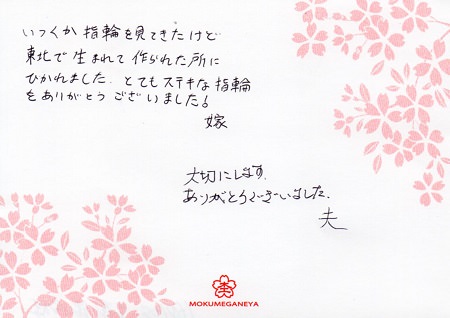 いくつか指輪を見てきたけど
東北で生まれて作られた所に
ひかれました。とてもステキな指輪
をありがとうございました!
嫁
大切にします。
ありがとうございました。
夫
MOKUMEGANEYA